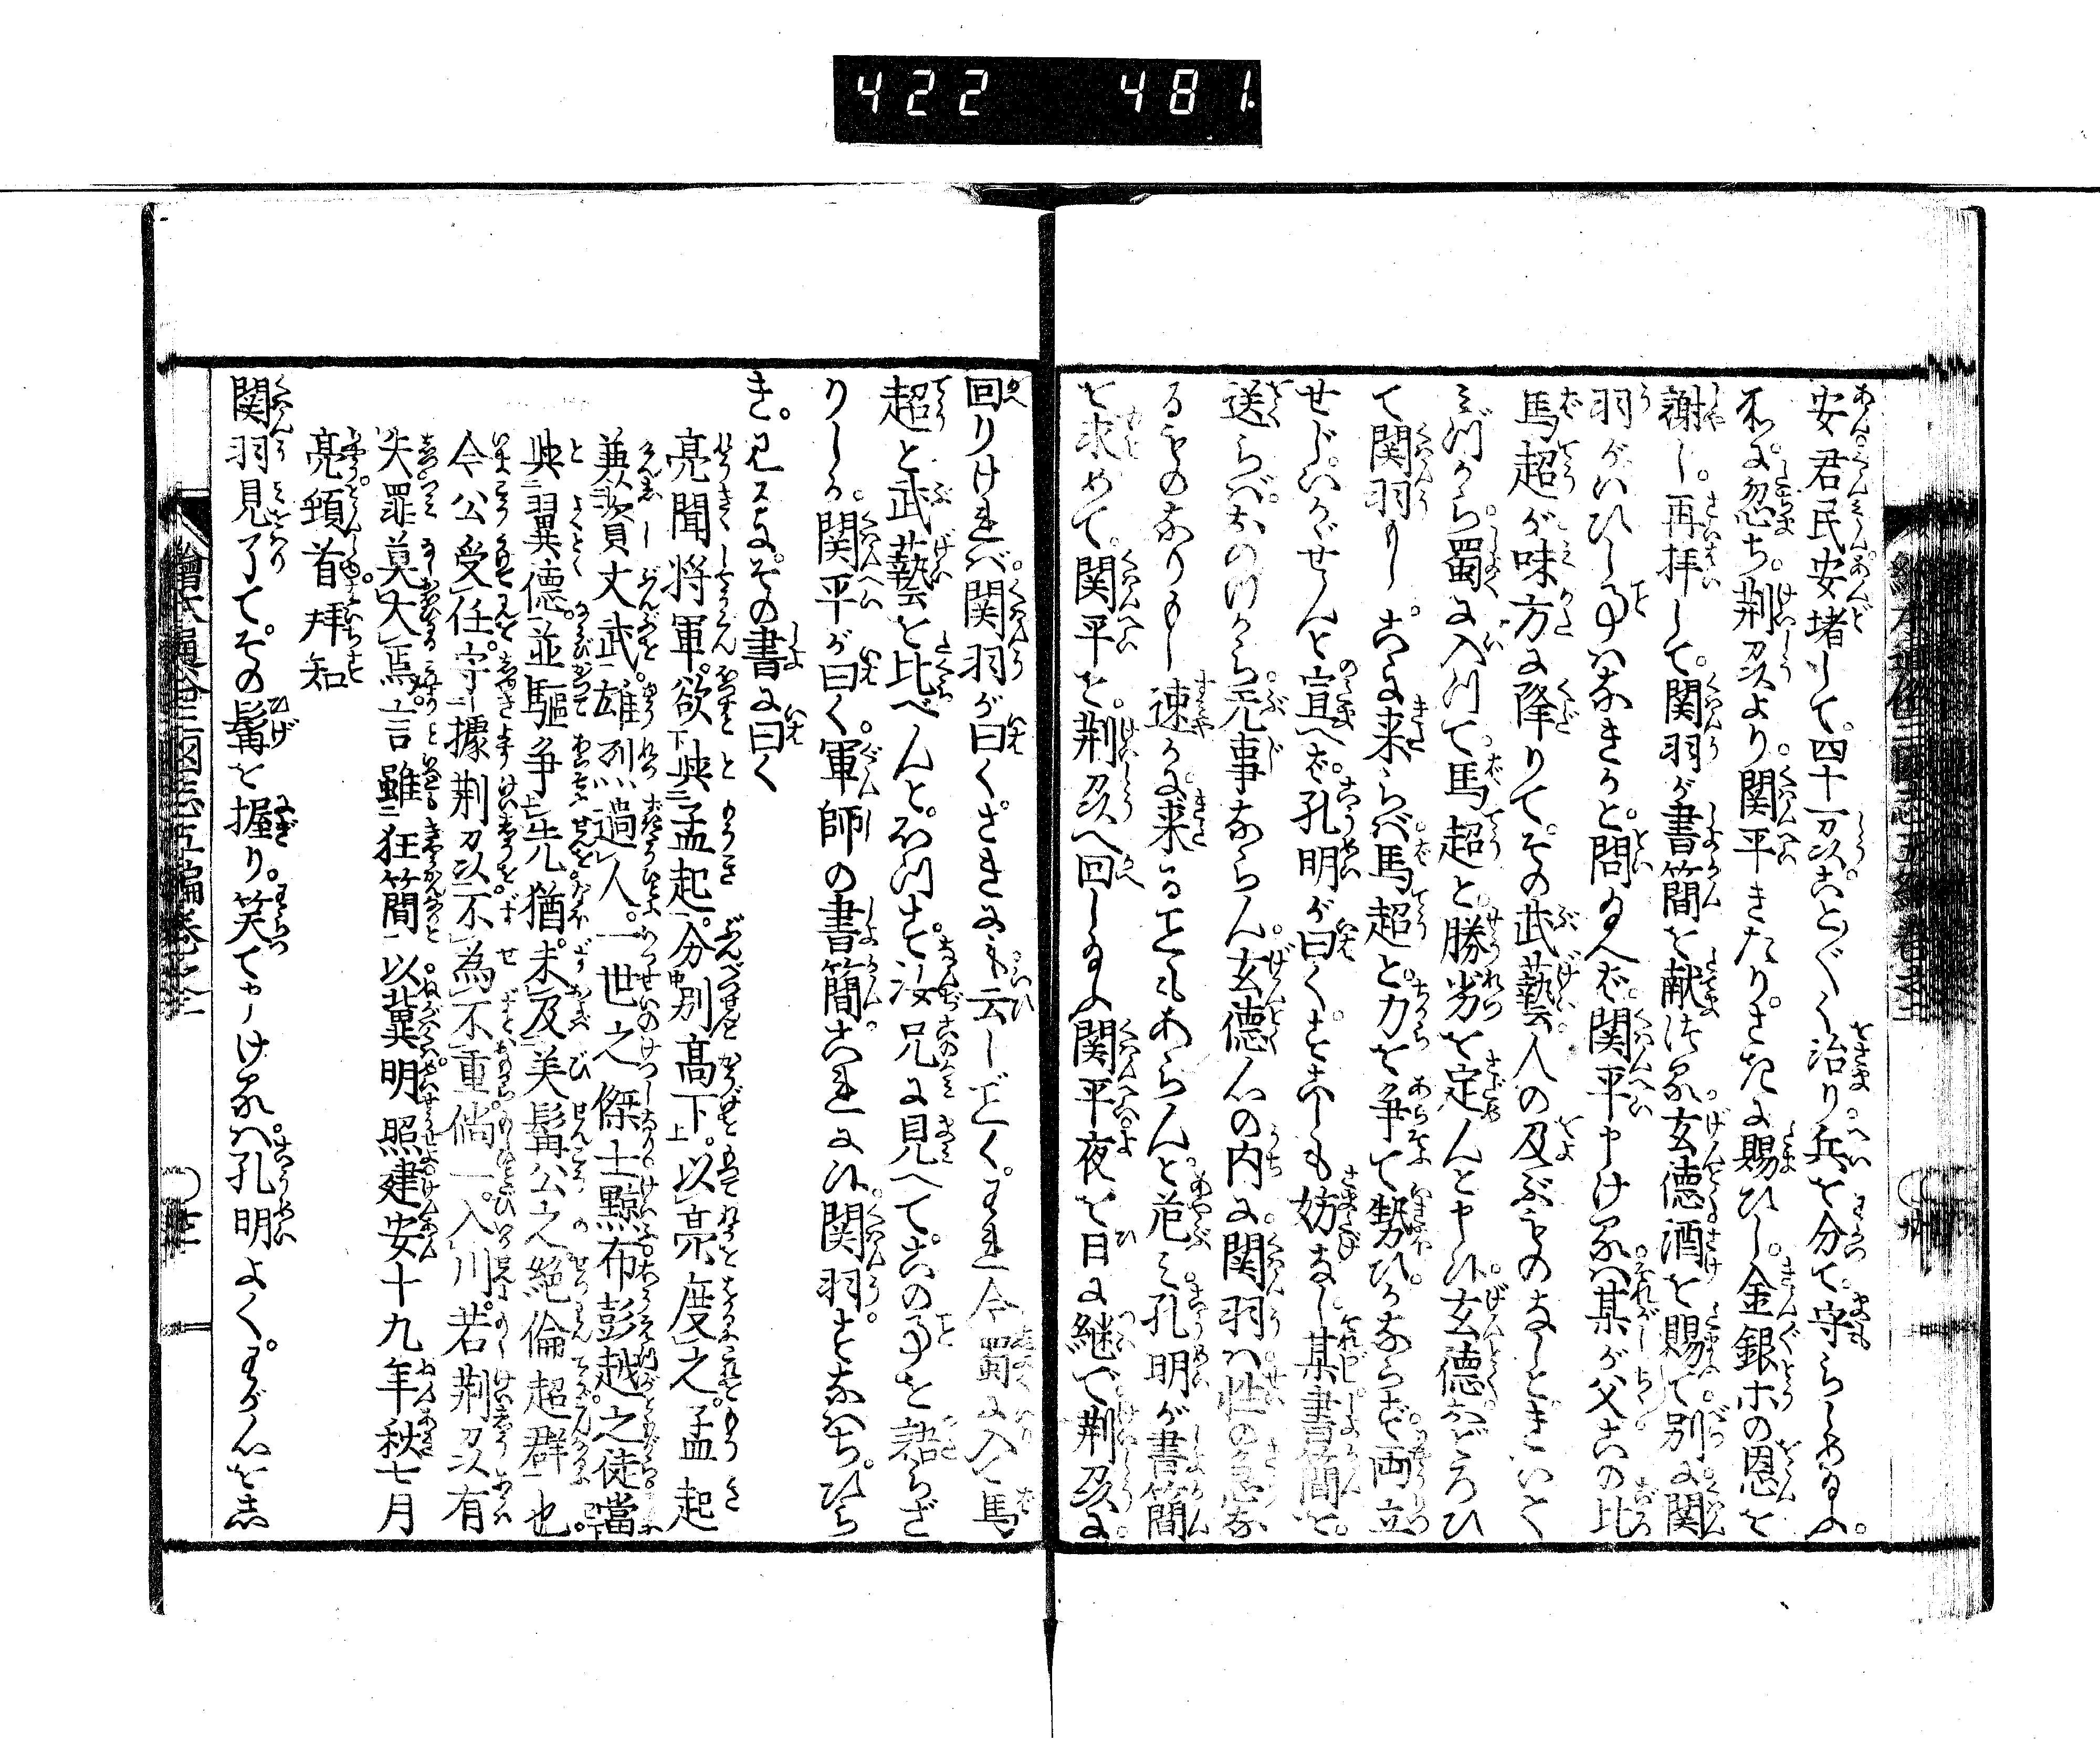 422 481
安君民安堵して。四十一刕ことごとく治り兵を分て。守らしめ給ふ。
不に忽ち。荊刕より。関平きたり。さきに賜ひし。金銀ホの恩を
謝し。再拝して。関羽が書簡を献ければ。玄徳酒を賜て。別に関
羽がいひし事はなきかと。問給へば。関平申けるは。某が父この比
馬超が味方に降りて。その武藝。人の及ぶものなしときいて
みづから。蜀に入て。馬超と勝劣を定んと申。玄徳おどろひ
て関羽もし。こゝに来らば。馬超と。力を争て勢ひ。かならず。両立
せじ。いかゞせんと宣へば。孔明が曰く。すこしも妨なし。某書簡を。
送らば。おのづから。无事ならん。玄徳心の内に。関羽は。性の急な
るものなりもし速かに。来ることもあらんと。危み。孔明が書簡
を求めて。関平を。荊刕へ回し給ふ関平夜を日に継で荊刕に。
回りければ。関羽が曰くさきにも云しごとく。われ今蜀に入て馬
超と武藝を比べんと。おもふ。汝兄に見へて。この事を語らざ
りしか。関平が曰く。軍師の書簡。これに候。関羽。すなはち。ひら
き。見るに。その書に曰く
亮聞将軍。欲下与孟起分中別高下上。以亮度之。孟起
兼資文武。雄烈過人。一世之傑士。黥布彭越之徒。當
与翼徳並驅争先。猶未及美髯公之絶倫超群也
今公受任守據荊刕不為不重。倘一入川。若荊刕有
失罪莫大焉。言雖狂簡以冀明照建安十九年秋七月
亮頓首拜知
関羽見了て。その髯を握り。笑て申けるは。孔明よく。わが心を志